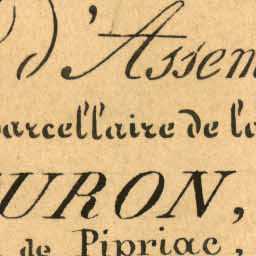 d'Assem
parcellaire de la
URON,
de Pipriac,